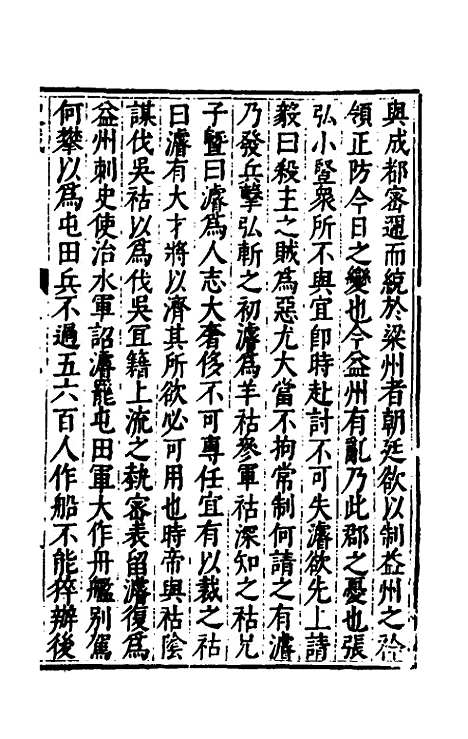 與成都審邇而統於梁州者朝廷欲以制益州之衿
領正防今日之變也今益州有亂乃此郡之憂也張
弘小豎衆所不與宜卽時赴討不可失濬欲先上請
毅曰殺主之賊爲惡尤大當不拘常制何請之有濬
乃發兵擊弘斬之初濬爲羊祜參軍祜深知之祜兄
子曁曰濬爲人志大奢侈不可專任宜有以裁之祜
曰濬有大才將以濟其所欲必可用也時帝與祜陰
謀伐吳祜以爲伐吳宜籍上流之埶審表留濬復爲
益州刺史使治水軍詔濬罷屯田軍大作舟艦别駕
何攀以爲屯田兵不過五六百人作船不能猝辦後